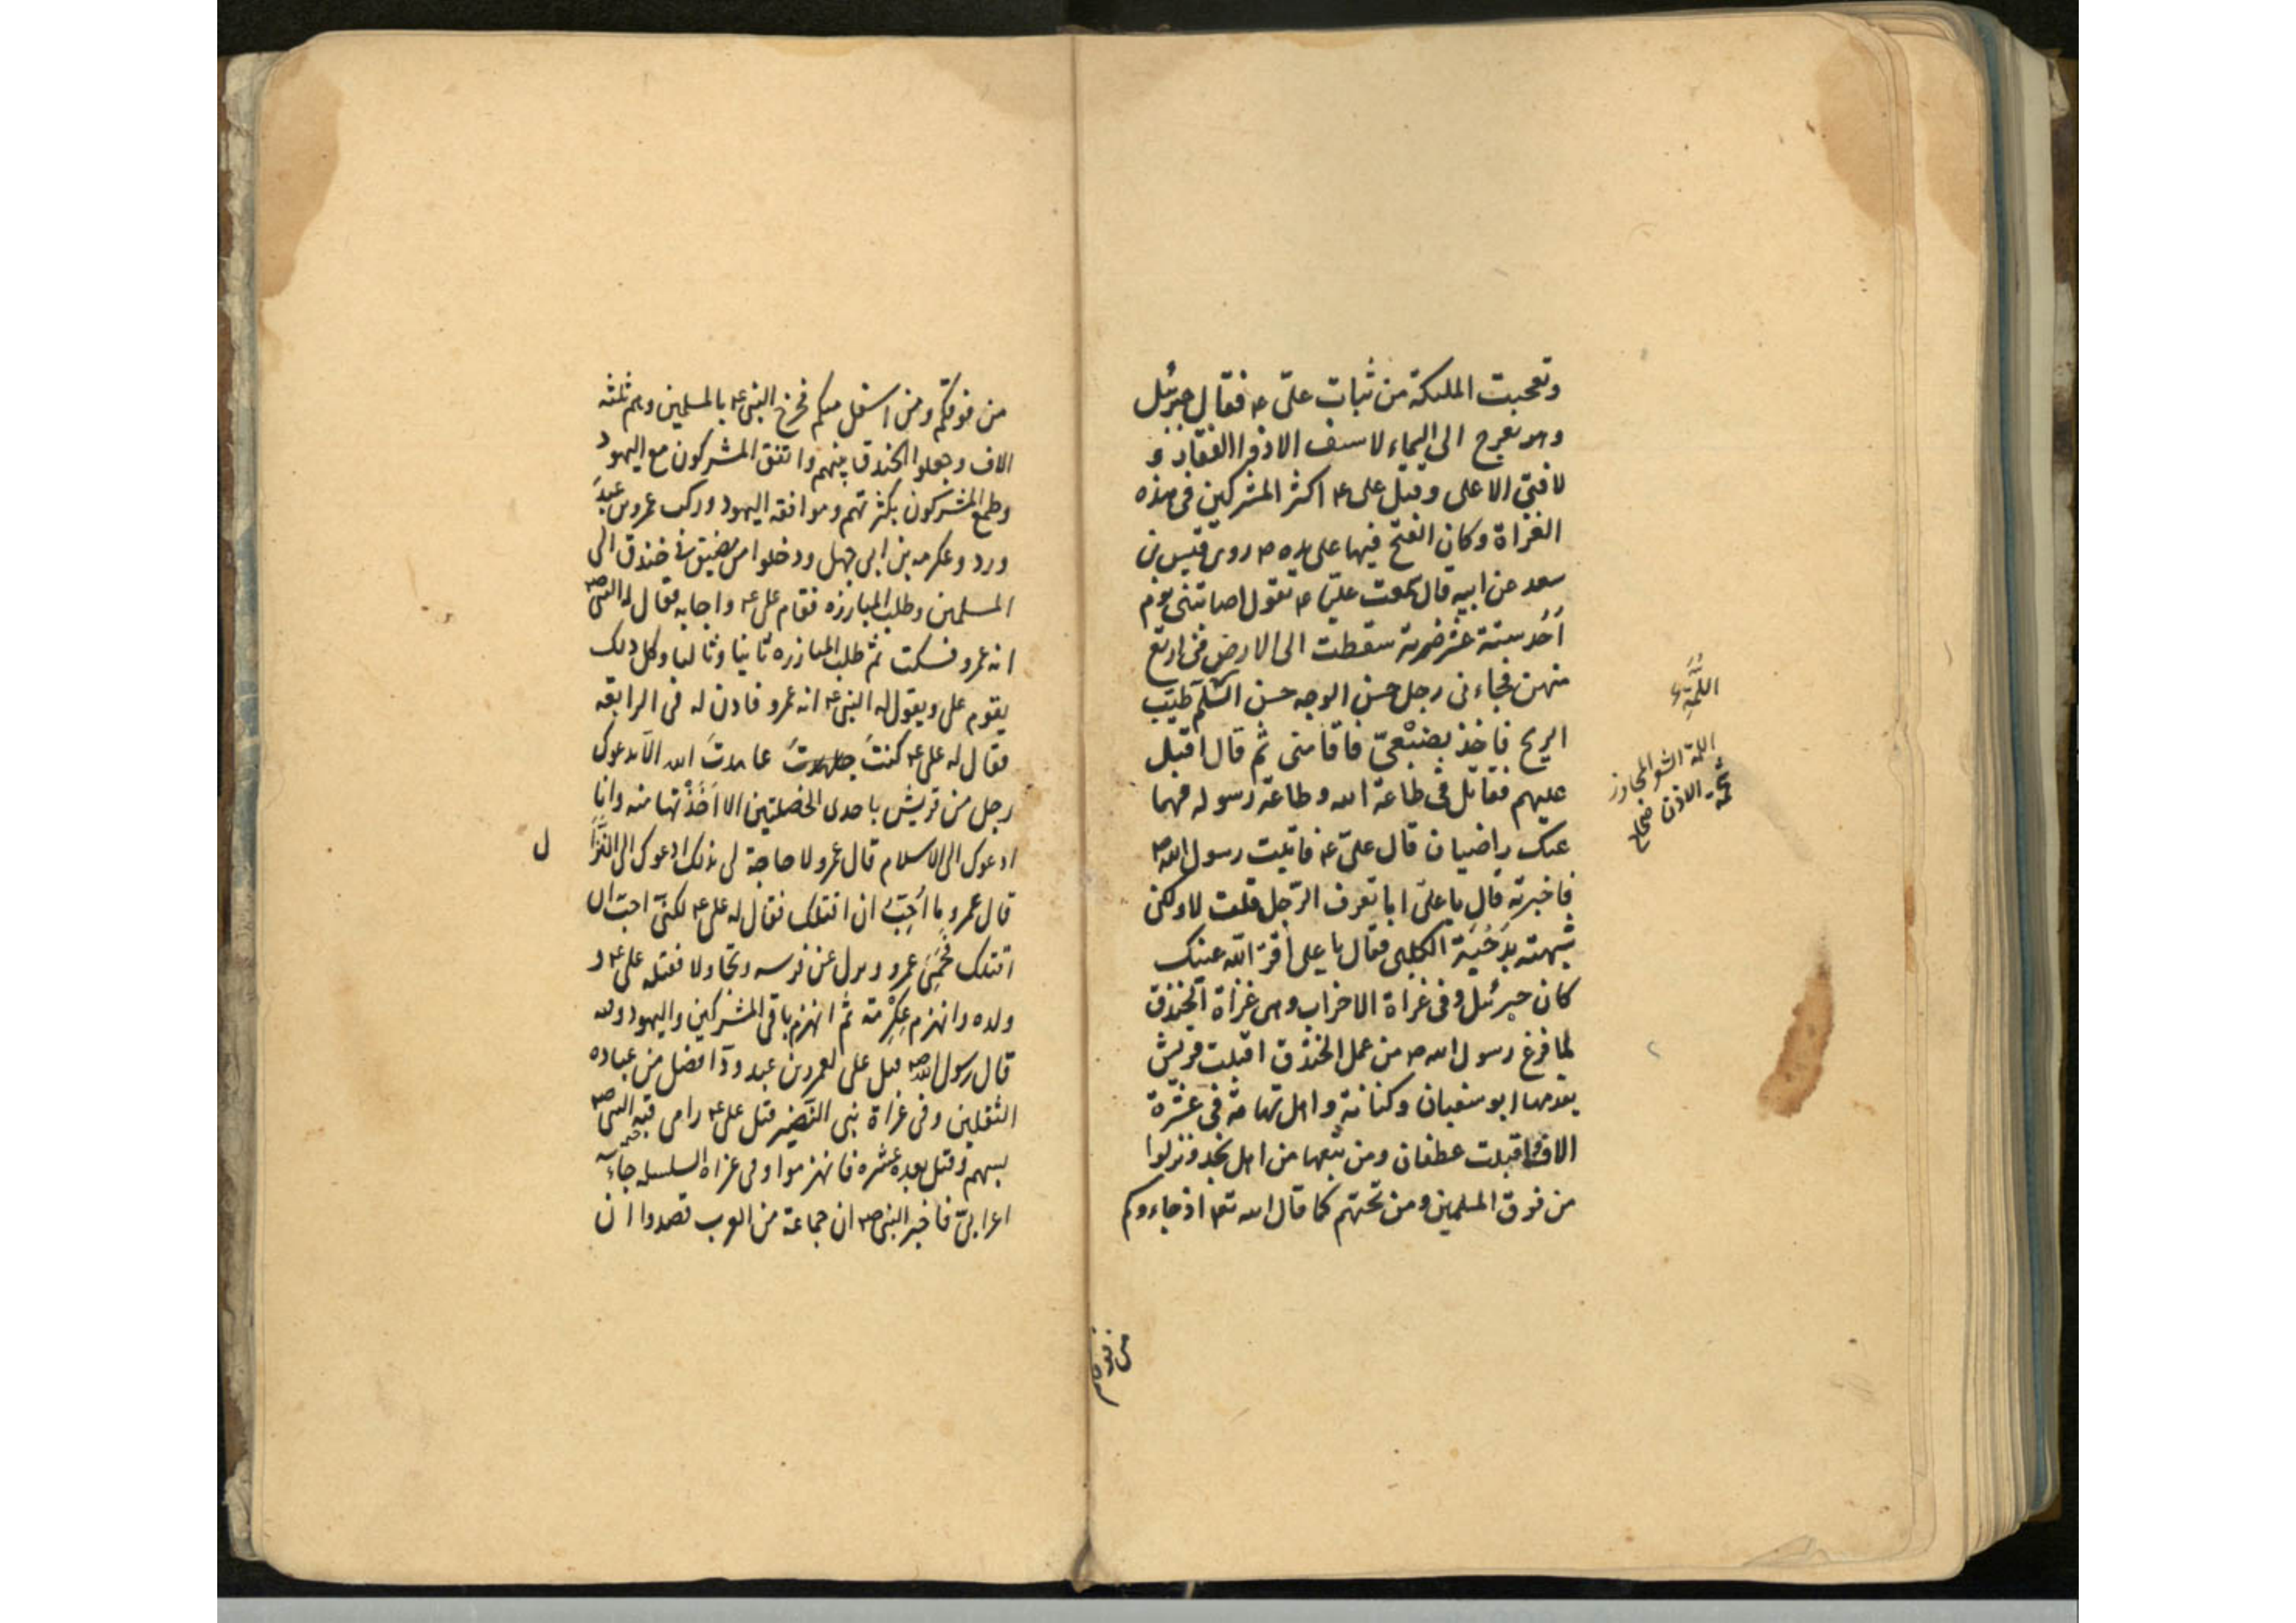 وتعجبت الملئكة من ثبات علىّ ع فقال جبرئيل
وهو يعرج الى السماء لا سيف الا ذو الفقار و
لا فتى الا على وقتل على ع اكثر المشركين فى هذه
الغزاة وكان الفتح فيها على يده ع روى قيس بن
سعد عن ابيه قال سمعت عليّا ع يقول اصابتنى يوم
اُحُد ستة عشر ضربة سقطت الى الارض فى اربع
منهن فجاءنى رجل حسن الوجه حسن اللمة طيّب
الريح فاخذ بضَبْعىّ فاقامنى ثم قال اقبل
عليهم فقاتل فى طاعة الله وطاعة رسوله فهما
عنك راضيان قال علىّ ع فاتيت رسول الله ص
فاخبرته قال يا علىّ اما تعرف الرّجل قلت لا ولكنى
شبهته بدَحْيَة الكلبى فقال يا على اقرّ الله عينك
كان جبرئيل وفى غزاة الاحزاب وهى غزاة الخندق
لما فرغ رسول الله ص من عمل الخندق اقبلت قريش
يقدمها ابو سفيان وكنانة واهل تهامة فى عشرة
الاف واقبلت غطفان ومن تبعها من اهل نجد ونزلوا
من فوق المسلمين ومن تحتهم كما قال الله تع اذ جاءوكم
اللِّمَّة
اللمة الشعر المجاوز
شحمة الاذن صحاح
من فوقكم
من فوقكم ومن اسفل منكم فخرج النبى ع بالمسلمين وهم ثلثة
الاف وجعلوا الخندق بينهم واتفق المشركون مع اليهود
وطمع المشركون بكثرتهم وموافقه اليهود وركب عمرو بن عبد
ورد وعكرمه بن ابى جهل ودخلوا من مضيق فى خندق الى
المسلمين وطلب المبارزه فقام على ع واجابه فقال له النبى ص
انه عمرو فسكت ثم طلب المبازره ثانيا وثالثا وكل ذلك
يقوم على ويقول له النبى ع انه عمرو فاذن له فى الرابعه
فقال له على ع كنتَ عاهدتَ الله الّا يدعوك
رجل من قريش باحدى الخصلتين الا اَخَذْتها منه وانا
ادعوك الى الاسلام قال عمرو لا حاجة لى بذلك ادعوك الى النِّزَا
ل
قال عمرو ما اُحِبُّ ان اقتلك فقال له على ع لكنّى احبّ ان
اقتلك فَحَمِىَ عمرو ونزل عن فرسه وتجاولا فقتله على ع و
ولده وانهزم عِكْرِمَة ثم انهزم باقى المشركين واليهود وله
قال رسول الله ص قتل على لعمرو بن عبد ودّ افضل من عباده
الثقلين وفى غزاة بنى النَّضِير قتل على ع رامى قبّه النبى ص
بسهم وقتل بعده عشره فانهزموا وفى غزاه السلسله جاء
اعرابىّ فاخبر النبى ص ان جماعة من العرب قصدوا ان